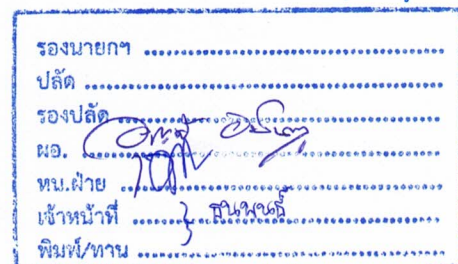 รองนายกฯ
ปลัด
รองปลัด
ผอ.
หน.ฝ่าย
เจ้าหน้าที่ } ธนพนธ์
พิมพ์/ทาน